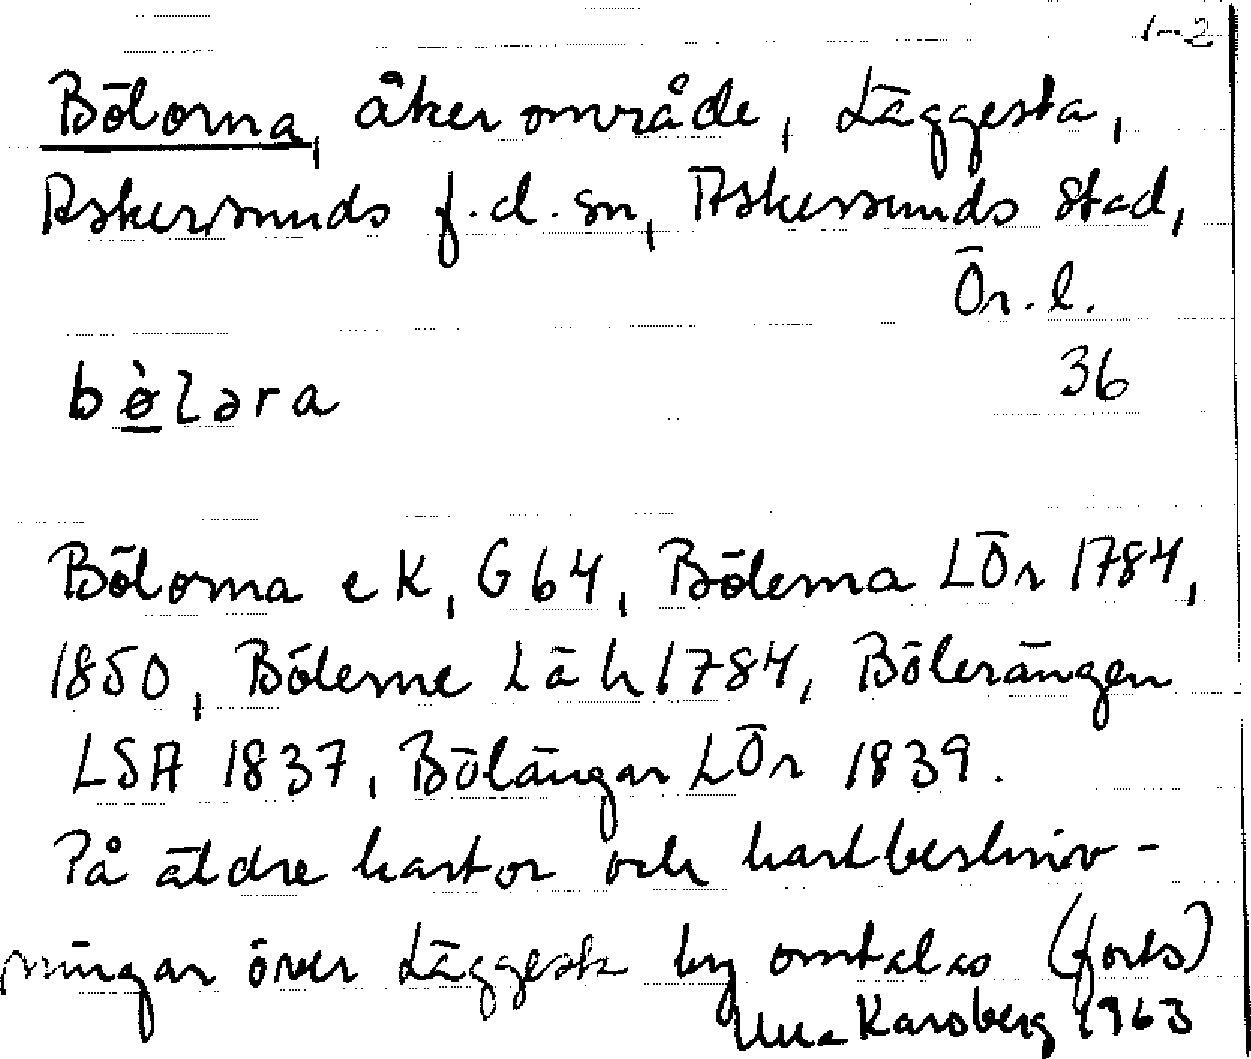 1-2
Bölorna, åkerområde, Läggesta,
Askersunds f.d. sn, Askersunds stad,
Ör. l.
36
bø̀ləra
Bölorna eK, G64, Bölerna LÖr 1784,
1850, Bölerne Läh 1784, Bölerängen
LSA 1837, Bölängar LÖr 1839.
På äldre kartor och kartbeskriv-
ningar över Läggesta by omtalas (forts)
Karsberg 1963